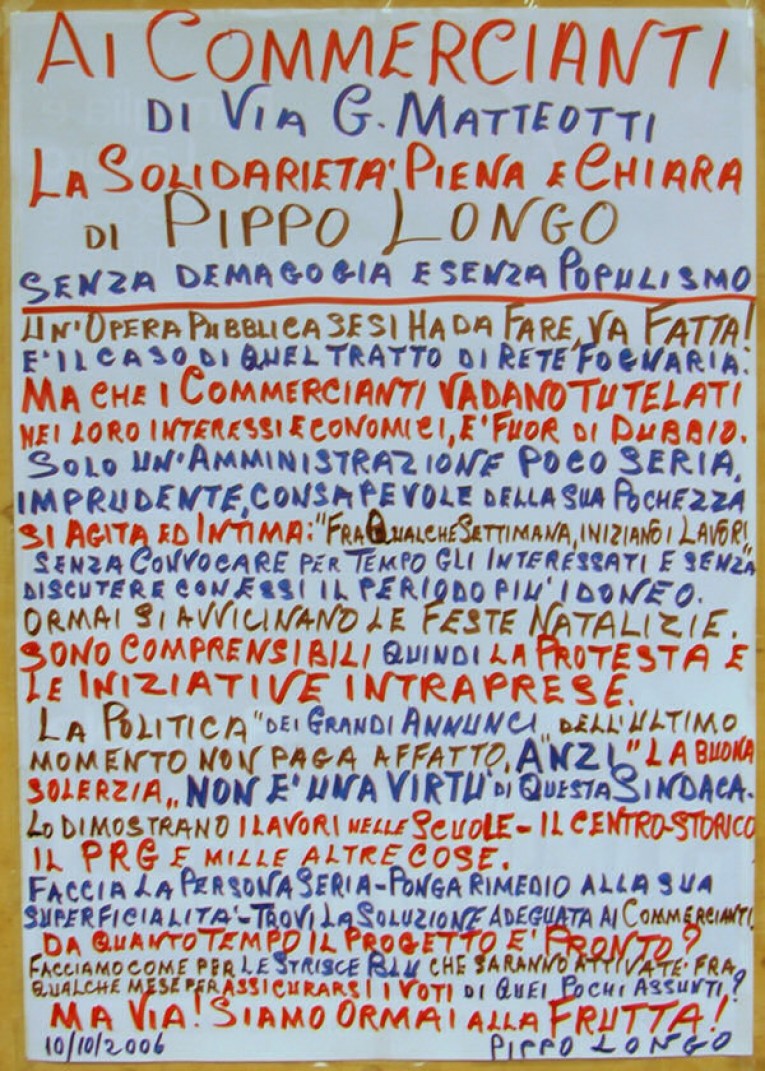 AI COMMERCIANTI
DI VIA G. MATTEOTTI
LA SOLIDARIETA' PIENA E CHIARA
DI PIPPO LONGO
SENZA DEMAGOGIA E SENZA POPULISMO
UN'OPERA PUBBLICA SE SI HA DA FARE, VA FATTA!
E' IL CASO DI QUEL TRATTO DI RETE FOGNARIA.
MA CHE I COMMERCIANTI VADANO TUTELATI
NEI LORO INTERESSI ECONOMICI, E' FUOR DI DUBBIO.
SOLO UN'AMMINISTRAZIONE POCO SERIA,
IMPRUDENTE, CONSAPEVOLE DELLA SUA POCHEZZA
SI AGITA ED INTIMA: "FRA QUALCHE SETTIMANA, INIZIANO I LAVORI"
SENZA CONVOCARE PER TEMPO GLI INTERESSATI E SENZA
DISCUTERE CON ESSI IL PERIODO PIU' IDONEO.
ORMAI SI AVVICINANO LE FESTE NATALIZIE.
SONO COMPRENSIBILI QUINDI LA PROTESTA E
LE INIZIATIVE INTRAPRESE.
LA POLITICA "DEI GRANDI ANNUNCI" DELL'ULTIMO
MOMENTO NON PAGA AFFATTO, ANZI, "LA BUONA
SOLERZIA" NON E' UNA VIRTU' DI QUESTA SINDACA.
LO DIMOSTRANO I LAVORI NELLE SCUOLE - IL CENTRO-STORICO
IL PRG E MILLE ALTRE COSE.
FACCIA LA PERSONA SERIA - PONGA RIMEDIO ALLA SUA
SUPERFICIALITA' - TROVI LA SOLUZIONE ADEGUATA AI COMMERCIANTI.
DA QUANTO TEMPO IL PROGETTO E' PRONTO?
FACCIAMO COME PER LE STRISCE BLU CHE SARANNO ATTIVATE FRA
QUALCHE MESE PER ASSICURARSI I VOTI DI QUEI POCHI ASSUNTI?
MA VIA! SIAMO ORMAI ALLA FRUTTA!
10/10/2006 PIPPO LONGO